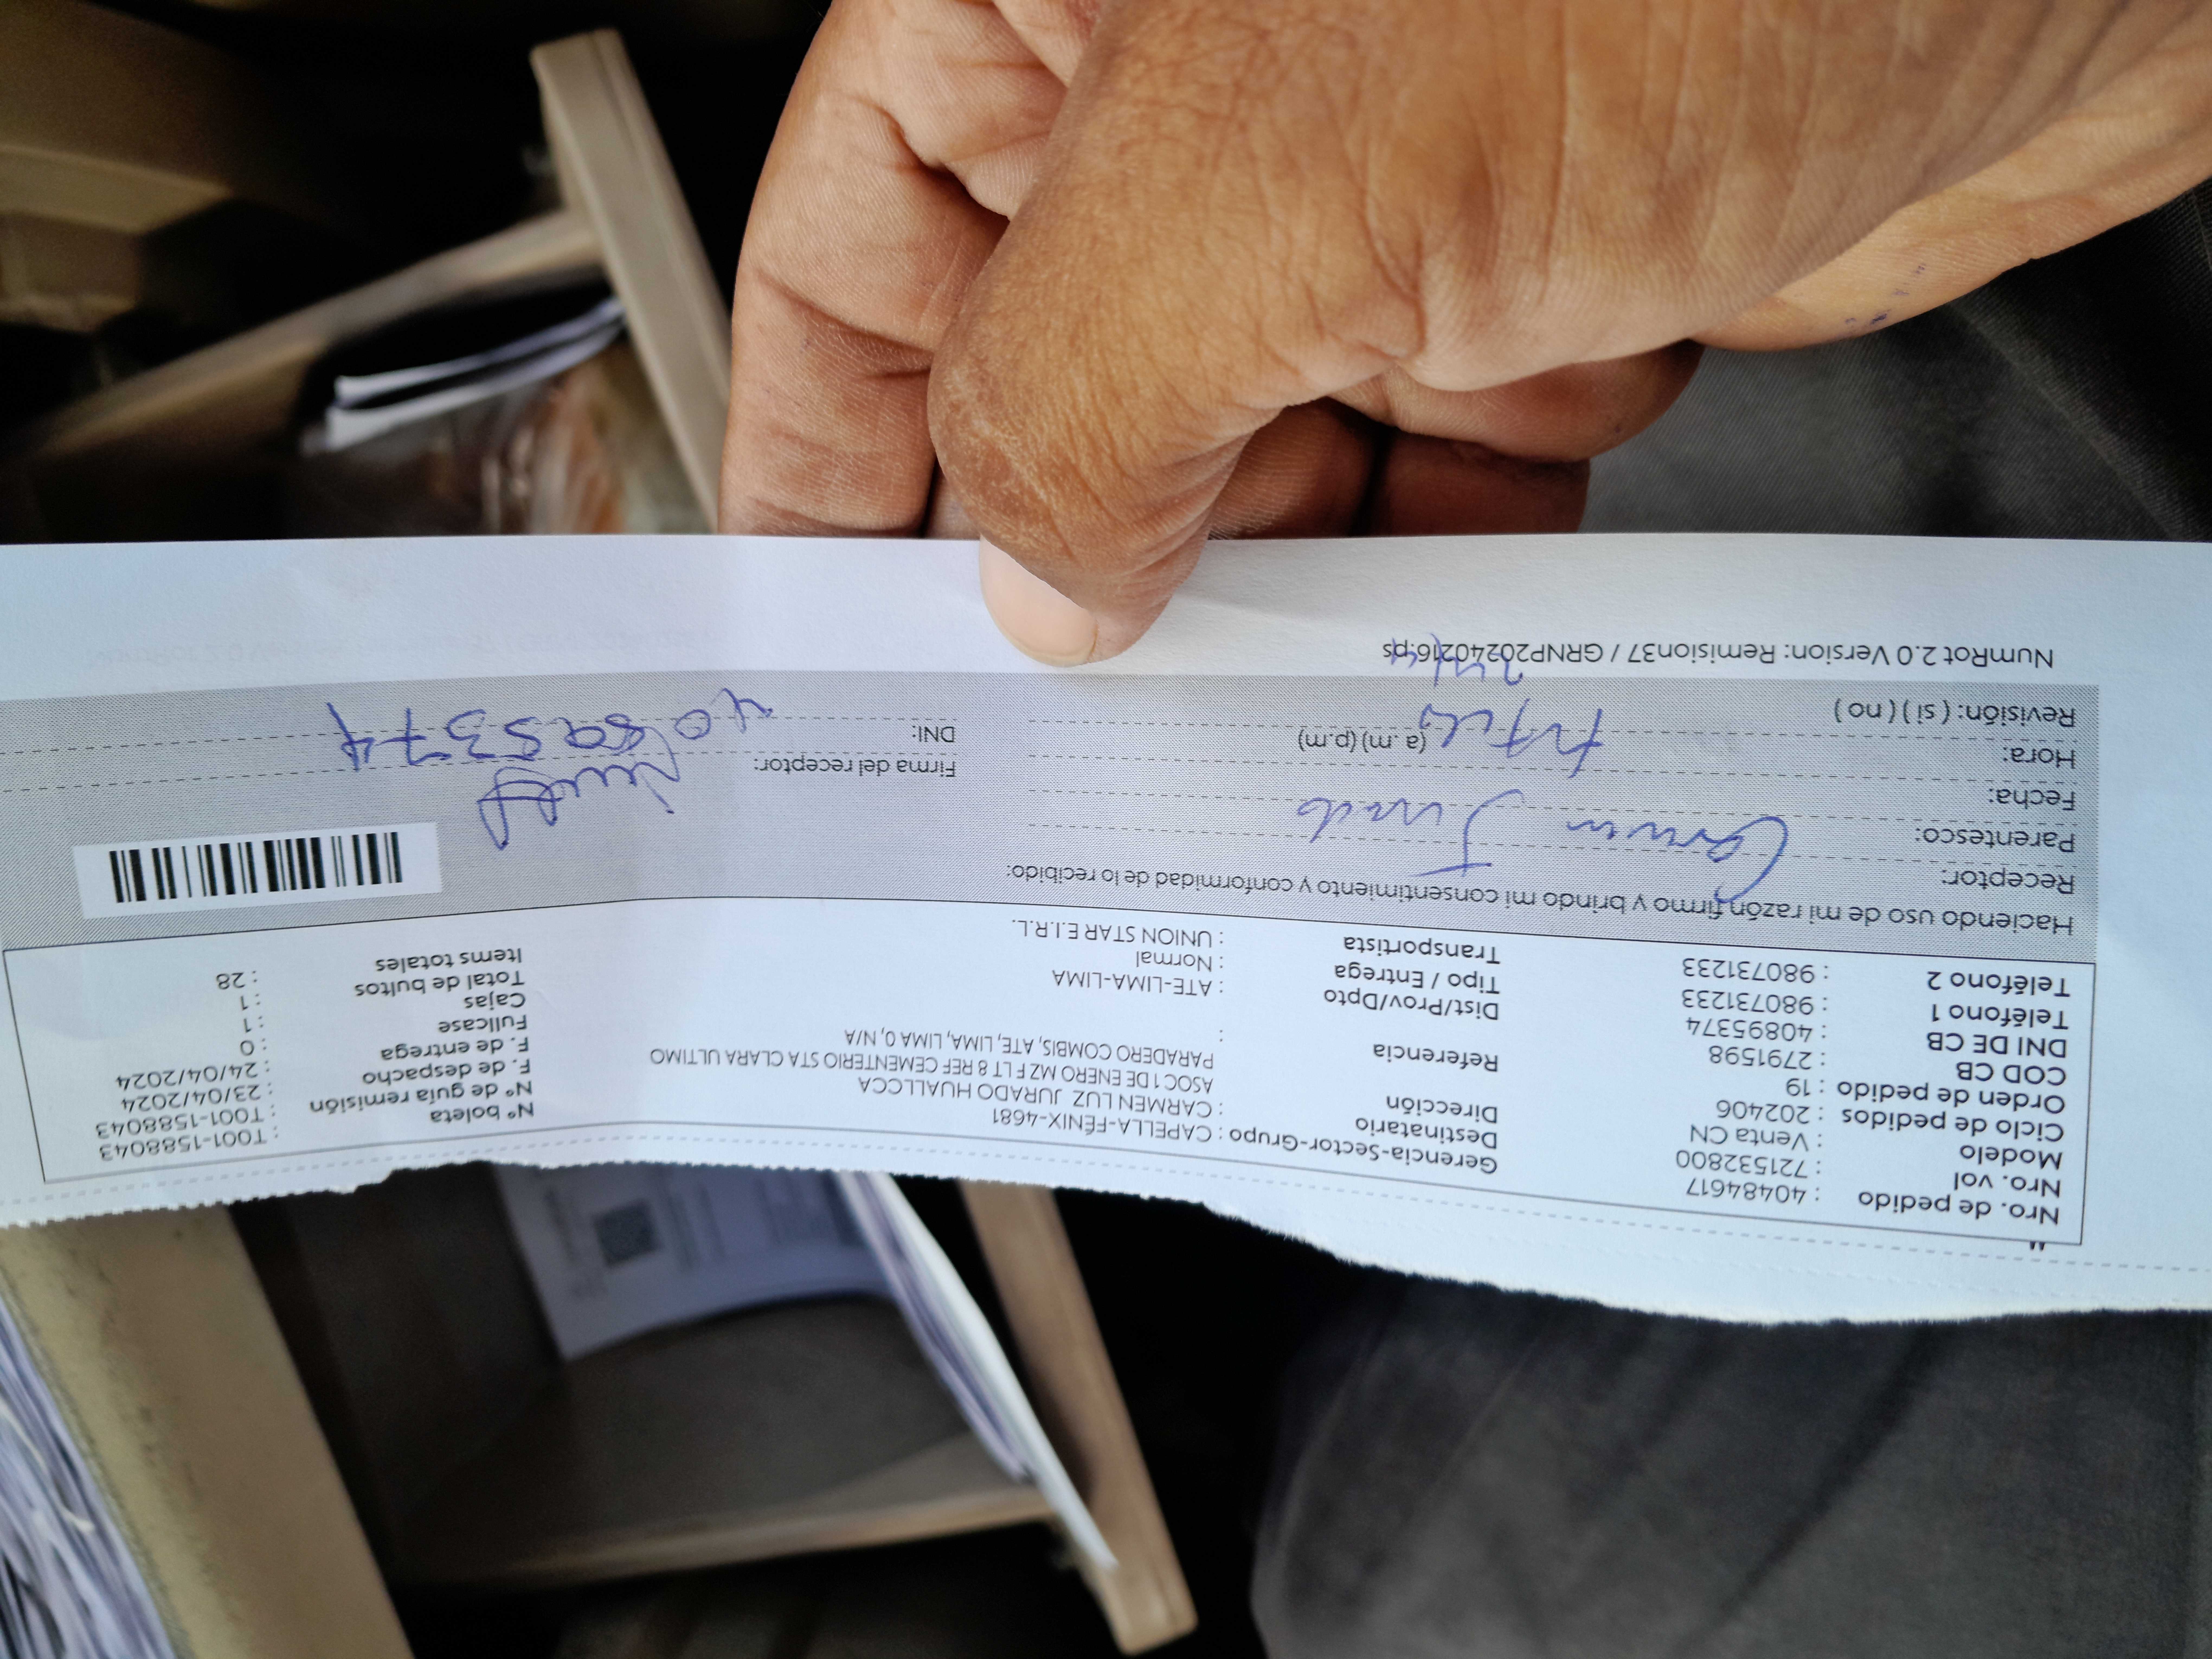 Nro. de pedido : 40484617
Nro. vol : 721532800
Modelo : Venta CN
Ciclo de pedidos : 202406
Orden de pedido : 19
COD CB : 2791598
DNI DE CB : 40895374
Teléfono 1 : 980731233
Teléfono 2 : 980731233
Gerencia-Sector-Grupo : CAPELLA-FÉNIX-4681
Destinatario : CARMEN LUZ JURADO HUALLCCA
Dirección ASOC 1 DE ENERO MZ F LT 8 REF CEMENTERIO STA CLARA ULTIMO
PARADERO COMBIS, ATE, LIMA, LIMA 0, N/A
Referencia :
Dist/Prov/Dpto : ATE-LIMA-LIMA
Tipo / Entrega : Normal
Transportista : UNION STAR E.I.R.L.
N° boleta : T001-1588043
N° de guía remisión : T001-1588043
F. de despacho : 23/04/2024
F. de entrega : 24/04/2024
Fullcase : 0
Cajas : 1
Total de bultos : 1
Items totales : 28
Haciendo uso de mi razón firmo y brindo mi consentimiento y conformidad de lo recibido:
Receptor: Carmen Jurado
Parentesco:
Fecha:
Hora: (a.m) (p.m)
Revisión: ( si ) ( no )
Firma del receptor:
DNI: 40895374
NumRot 2.0 Version: Remision37 / GRNP20240216.ps